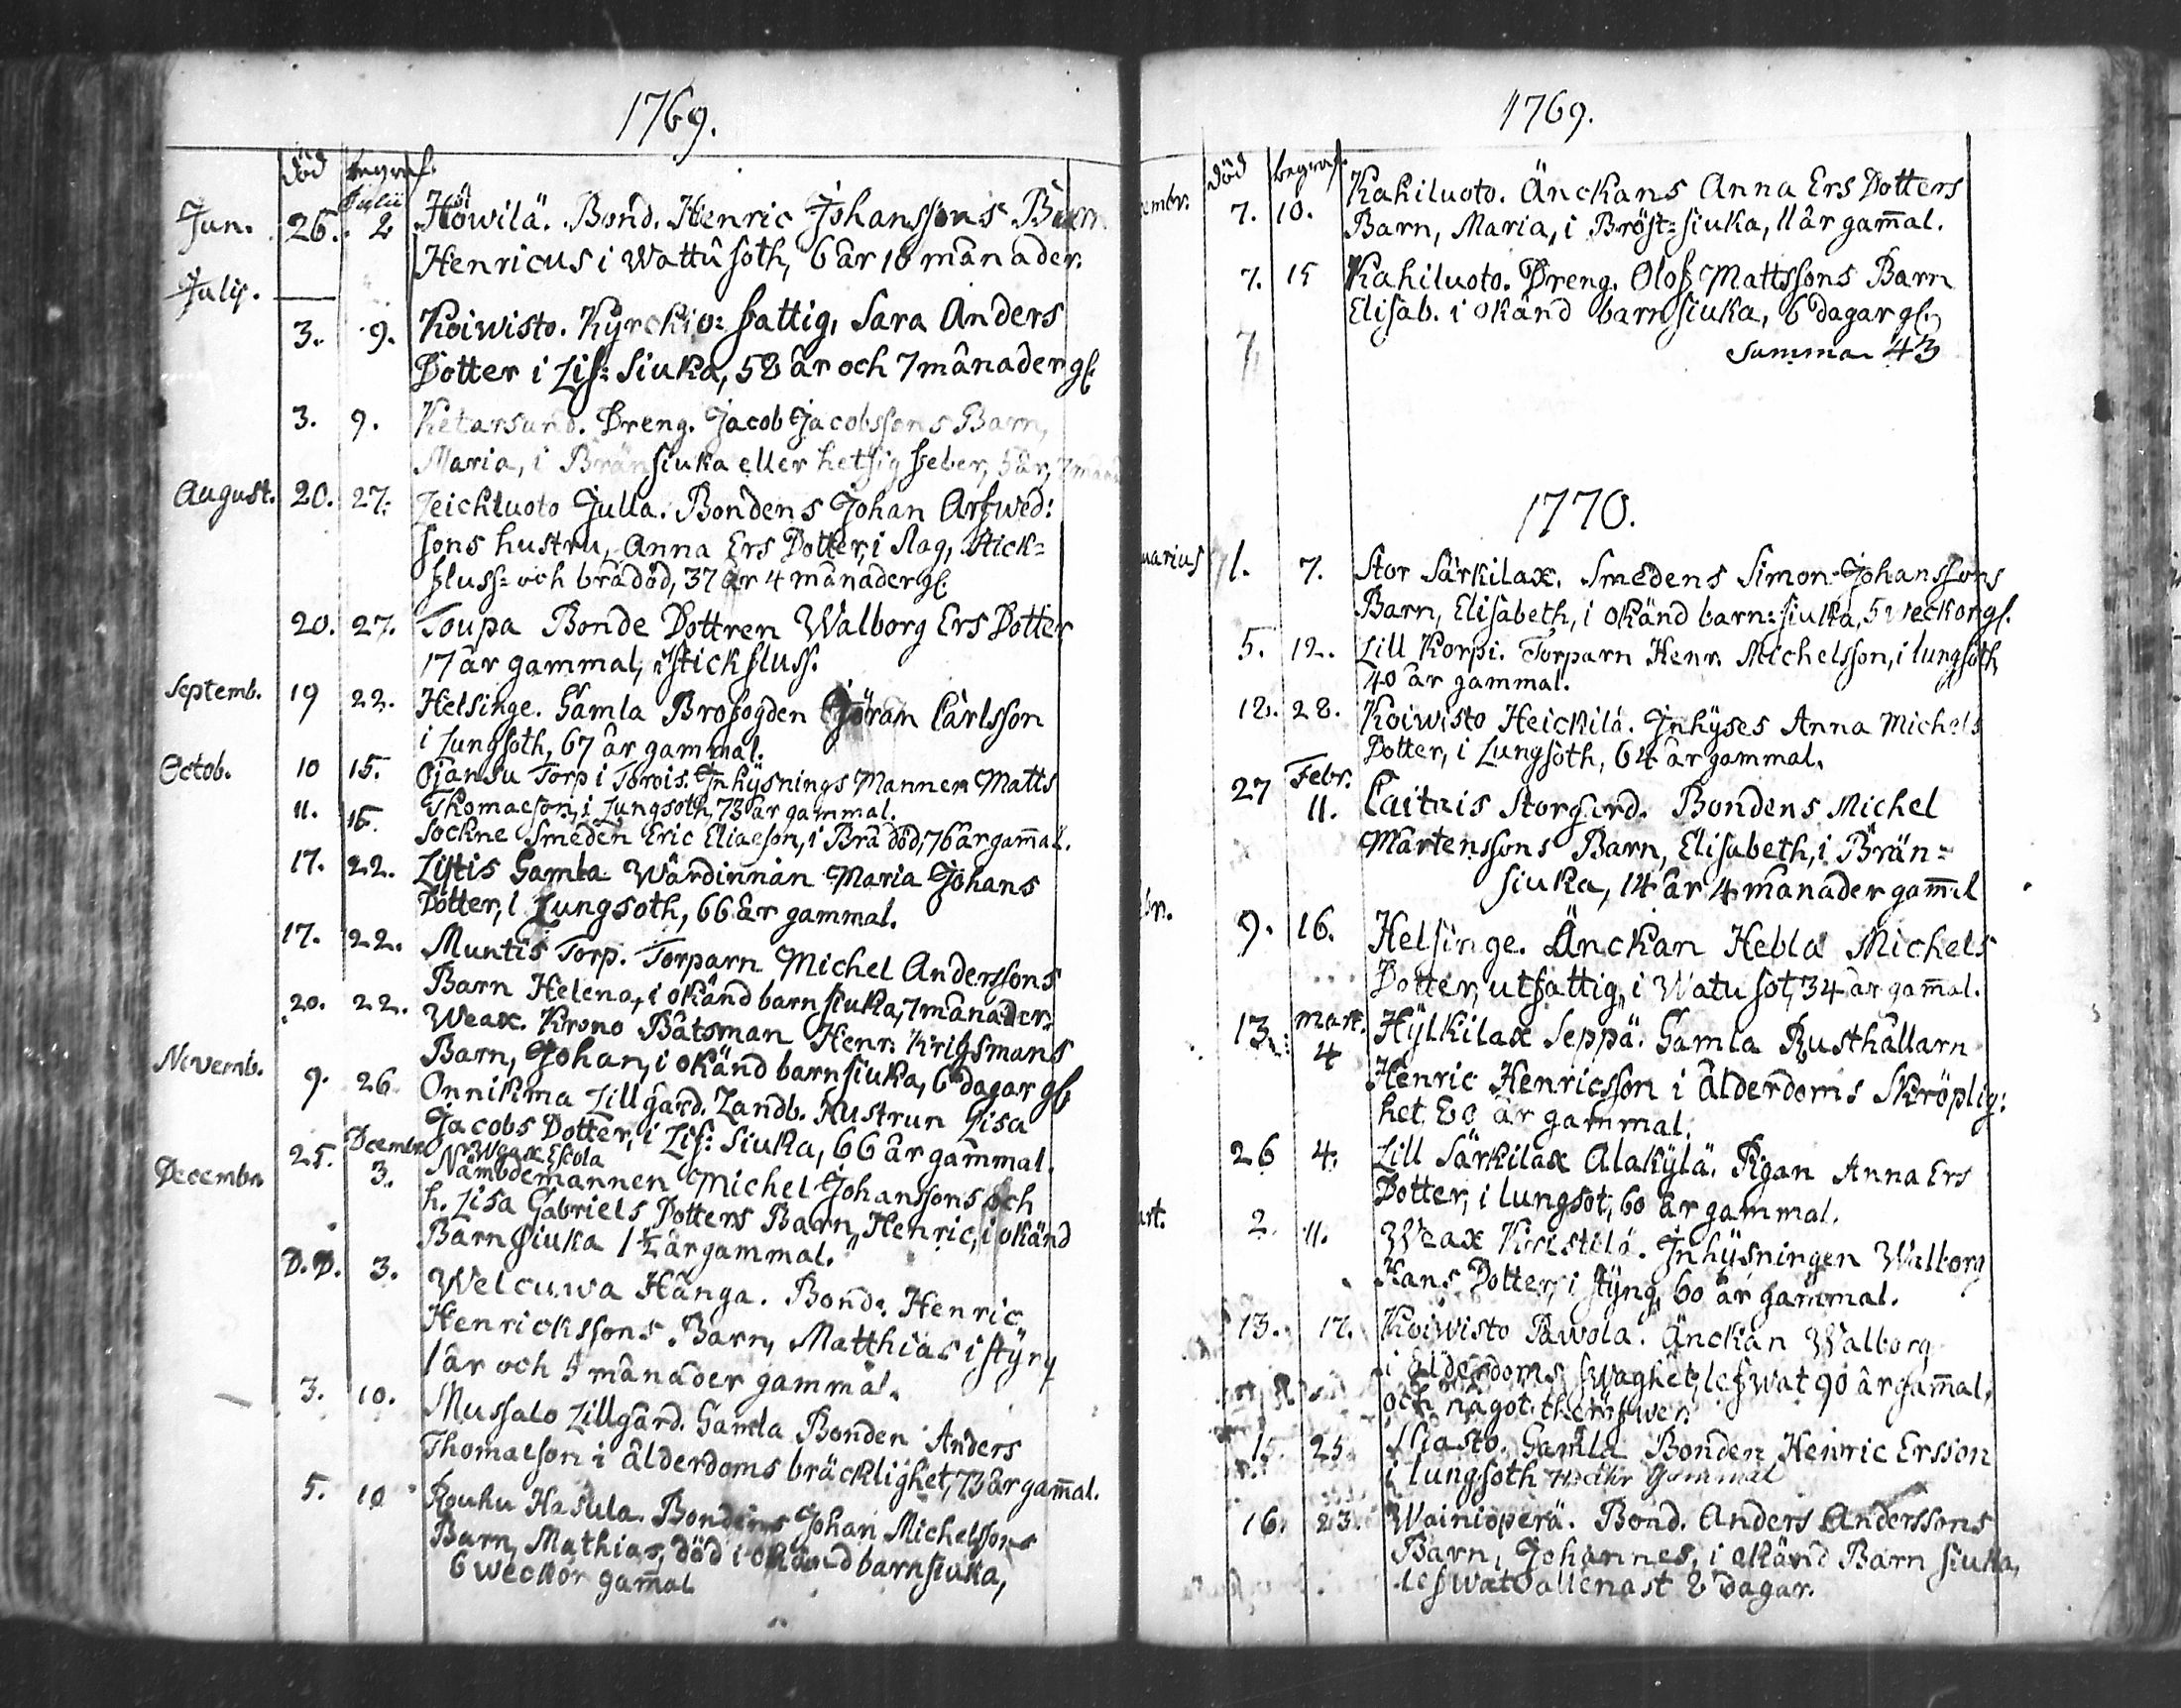 1769.
död begraf.
Julii
Jun. 26. 2 Höwilä. Bond. Henric Johanssons Barn
Henricus i Wattusoth, 6 år 10 månader.
Julij.
3. 9. Koiwisto. Kyrckio: fattig, Sara Anders
Dotter i Lif: siuka, 58 år och 7 månader gl:
3. 9. Ketarsund. Dreng. Jacob Jacobssons Barn,
Maria, i Brän siuka eller hetsig feber, 5 år, 7 månad
August. 20. 27. Leichluoto Julla. Bondens Johan Arfwed:
sons hustru, Anna Ers Dotter, i slag, Stick=
fluss: och brådöd, 37 år 4 månader gl.
20. 27. Toupa Bonde Dottren Walborg Ers Dotter
17 år gammal, i stickfluss.
Septemb. 19 22. Helsinge. Gamla Brofogden Göran Carlsson
i Lungsoth, 67 år gammal.
Octob. 10 15. Ojansu Torp i Torois. Inhysnings Mannen Matts
Thomaeson, i Lungsoth, 73 år gammal.
11. 15. Sockne Smeden Eric Eliaeson, i Brå död, 76 år gam̄al.
17. 22. Listis Gamla Wärdinnan Maria Johans
Dotter, i Lungsoth, 66 år gammal.
17. 22. Muntis Torp. Torparn Michel Anderssons
Barn Helena, i okänd barnsiuka, 7 månader.
20. 22. Weax. Krono Båtsman Henr. Krigsmans
Barn, Johan, i okänd barnsiuka, 6 dagar gl
Novemb. 9. 26. Onnikma Lillgård. Landb. Hustrun Lisa
Jacobs Dotter, i Lif: siuka, 66 år gammal.
Decembr. Weax Eskola
Decembr. 25. 3. Nämbdemannen Michel Johanssons och
h. Lisa Gabriels Dotters Barn, Henric, i okänd
Barnsiuka 1½ år gammal.
D.D. 3. Welcuwa Hånga. Bond: Henric
Henrickssons Barn, Matthias i styng
1 år och 5 månader gammal.
3. 10. Mussalo Lillgård. Gamla Bonden Anders
Thomaeson i ålderdoms bräcklighet, 73 år gam̄al.
5. 10 Rouhu Hasula. Bondens Johan Michelssons
Barn, Mathias, död i okänd barnsiuka,
6 weckor gam̄al
1769.
död begraf.
embr. 7. 10. Kahiluoto. Änckans Anna Ers Dotters
Barn, Maria, i Bröst=siuka, 11 år gam̄al.
7. 15 Kahiluoto. Dreng. Olof Mattssons Barn
Elisab. i okänd barnsiuka, 6 dagar gl.
7, Summa 43
1770.
uarius 1. 7. Stor Särkilax. Smedens Simon Johanssons
Barn, Elisabeth, i okänd barn=siuka, 5 weckor gl.
5. 12. Lill Korpi. Torparn Henr. Michelsson, i lungsoth,
40 år gammal.
18. 28. Koiwisto Heickilä. Inhyses Anna Michels
Dotter, i Lungsoth, 64 år gammal.
Febr.
27 11. Caitais Storgård. Bondens Michel
Mårtenssons Barn, Elisabeth, i Brän=
siuka, 14 år 4 månader gam̄al
br. 9. 16. Helsinge. Änckan Hebla Michels
Dotter, utfattig, i Watusot, 34 år gam̄al.
Mart.
13. 4 Hylkilax Seppä. Gamla Rusthållarn
Henric Henricsson i ålderdoms Skröplig:
het, 80 år gammal.
26 4. Lill Särkilax Alakylä. Pigan Anna Ers
Dotter, i lungsot, 60 år gammal.
art. 2. 11. Weax Kristilä. Inhysningen Walborg
Hans Dotter, i styng, 60 år gammal.
13. 17. Koiwisto Pawola. Änckan Walborg
i ålderdoms swaghet, lefwat 90 år gam̄al,
och något theröfwer.
15. 25. Gamla Bonden Henric Ersson
i lungsoth år gammal
16. 23. Wainiöperä. Bond. Anders Anderssons
Barn, Johannes, i okänd Barn siuka,
lefwat allenast 8 dagar.